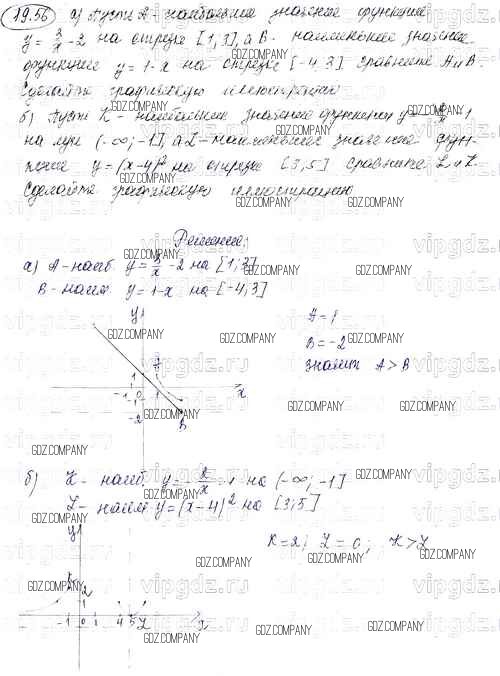 19.56 а) Пусть А - наибольшее значение функции
y = 3/x - 2 на отрезке [1,3], а В - наименьшее значение
функции y = 1-x на отрезке [-4,3] сравните А и В.
Сделайте графическую иллюстрацию
б) Пусть K - наибольшее значение функции y =
на луч (-∞; -1], а L - наименьшее значение функ-
y = (x-4)² на отрезке [3,5] сравните
Сделайте графическую иллюстрацию
Решение:
а) А - наиб. y = 3/x - 2 на [1;3]
В - наим y = 1-x на [-4,3]
A = 1
B = -2
значит A > B
y
A
1
-1 0 1 x
-1
-2 B
б) K - наиб. y = -2/x + 1 на (-∞; -1]
L - наим y = (x-4)² на [3,5]
K = 2; L = 0; K > L
y
K 2
1
-1 0 1 4 5 L x
GDZ.COMPANY
vipgdz.ru